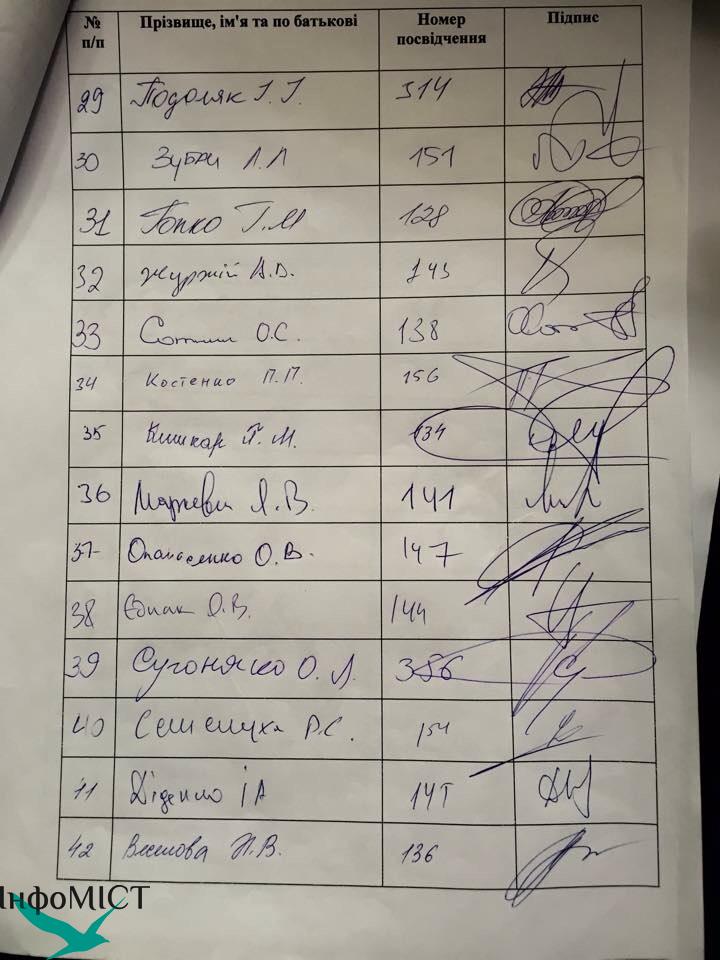 № п/п Прізвище, ім'я та по батькові Номер посвідчення Підпис
29 Подоляк І. І. 314
30 Зубач Л. Л 151
31 Гопко Г. М 128
32 Журжій А. В. 143
33 О.С. 138
34 Костенко П. П. 156
35 Кишкар П. М. 134
36 Маркевич Я. В. 141
37 Опанасенко О. В. 147
38 Єднак О. В. 144
39 Сугоняко О. Л. 356
40 Семенуха Р. С. 154
41 Діденко І А
42 Веселова Н. В. 136
ІнфоМІСТ